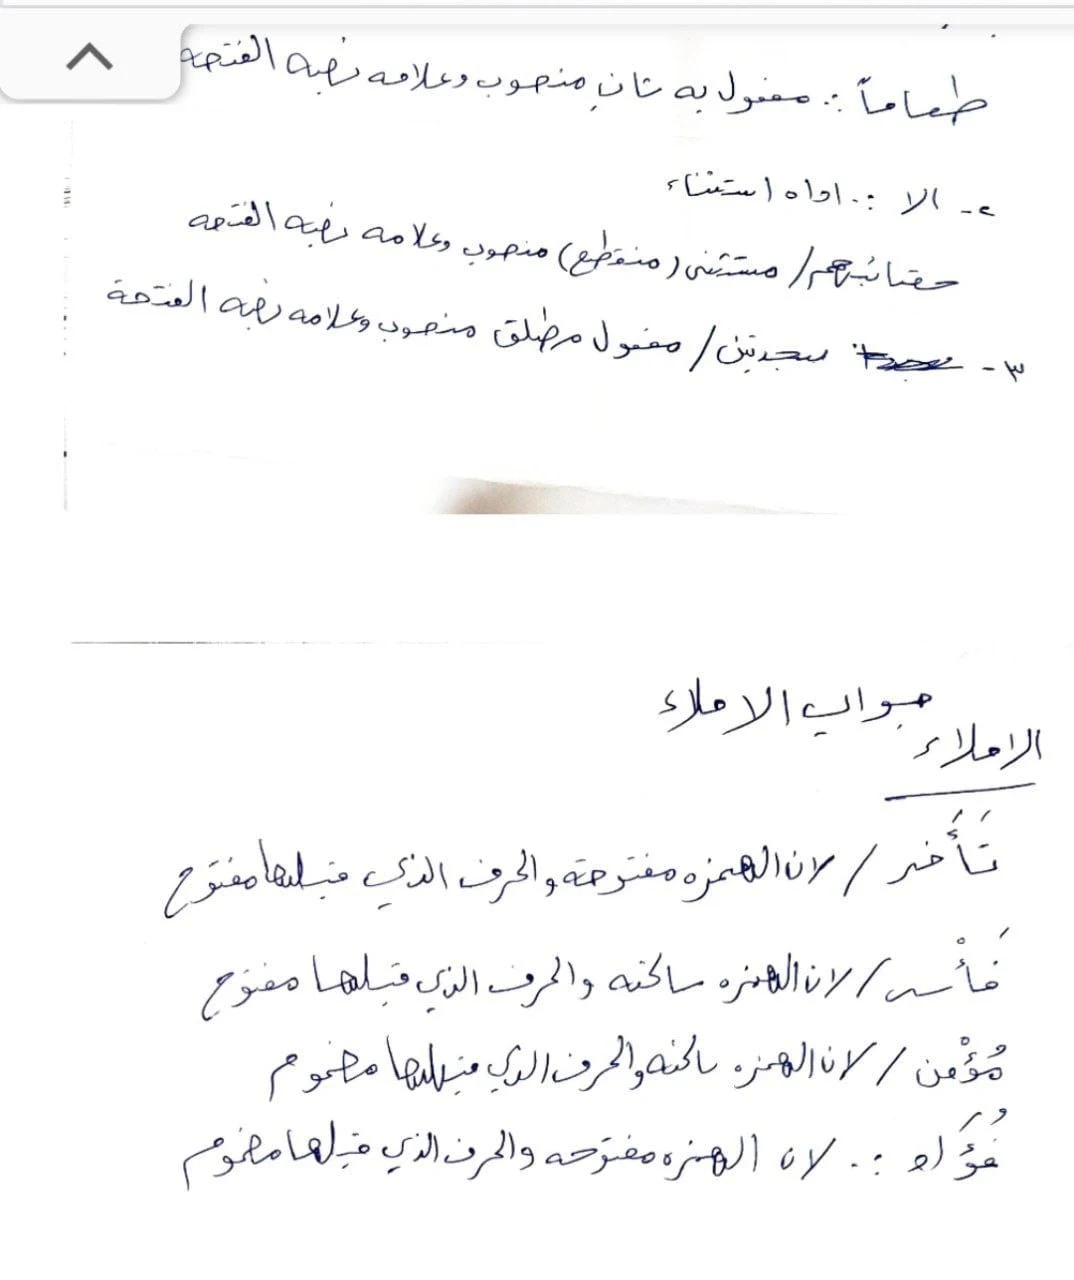 طعاماً :. مفعول به ثانٍ منصوب وعلامه نصبه الفتحه
٢- الا :. اداه استثناء
حقائبهم/ مستثنى (منقطع) منصوب وعلامه نصبه الفتحه
٣- سجدتين/ مفعول مطلق منصوب وعلامه نصبه الفتحة
جواب الاملاء
الاملاء
تَأَخر / لان الهمزه مفتوحة والحرف الذي قبلها مفتوح
فَأْس / لان الهمزه ساكنه والحرف الذي قبلها مفتوح
مُؤْمن / لان الهمزه ساكنه والحرف الذي قبلها مضموم
فُؤَاد :. لان الهمزه مفتوحه والحرف الذي قبلها مضموم